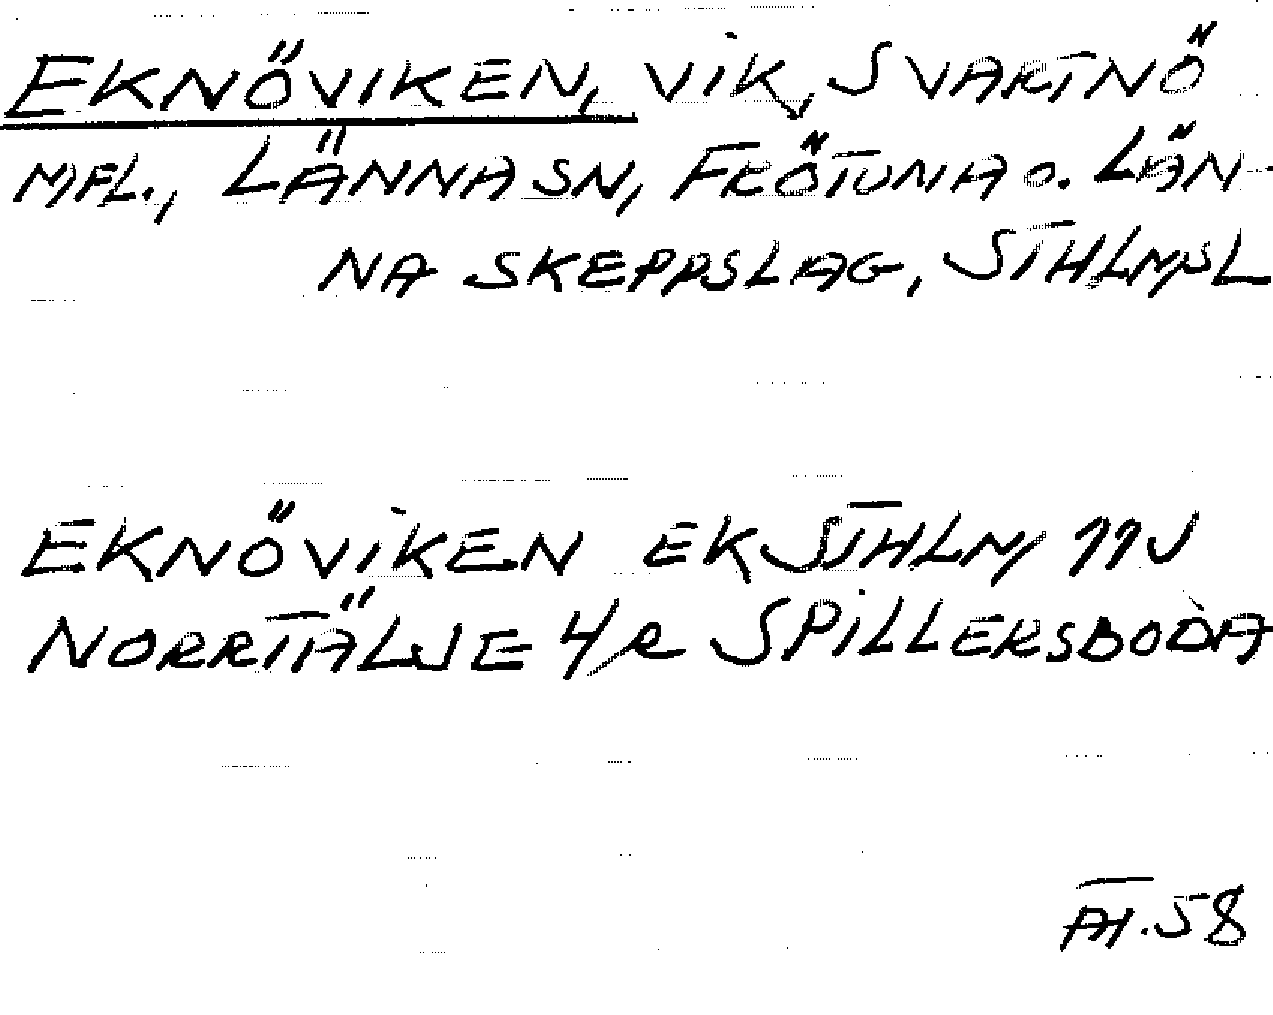 EKNÖVIKEN, VIK, SVARTNÖ
MFL., LÄNNA SN, FRÖTUNA O. LÄN-
NA SKEPPSLAG, STHLMSL
EKNÖVIKEN EKSTHLM 11J
NORRTÄLJE 4/R SPILLERSBODA
.58